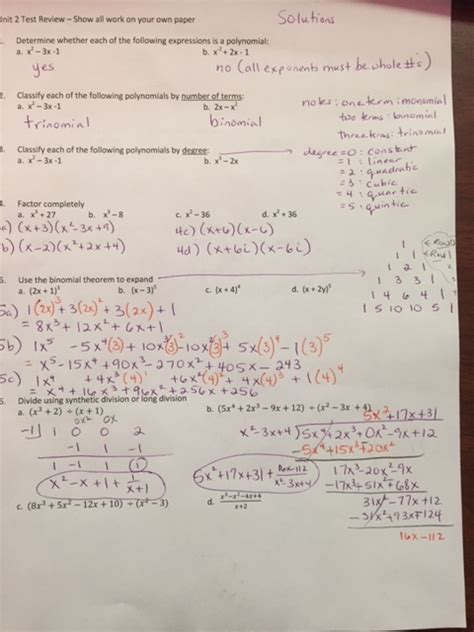 Unit 2 Test Review – Show all work on your own paper Solutions
Determine whether each of the following expressions is a polynomial:
a. x² – 3x -1 b. x + 2x - 1
yes no (all exponents must be whole #'s)
2. Classify each of the following polynomials by number of terms:
a. x² – 3x -1 b. 2x – x²
trinomial binomial
notes: one term: monomial
two terms: binomial
three terms: trinomial
3. Classify each of the following polynomials by degree:
a. x² – 3x -1 b. x³ – 2x
degree = 0: constant
= 1: linear
= 2: quadratic
= 3: cubic
= 4: quartic
= 5: quintic
4. Factor completely
a. x³ + 27 b. x³ – 8 c. x² – 36 d. x² + 36
a) (x+3)(x²-3x+9) 4c) (x+6)(x-6)
b) (x-2)(x²+2x+4) 4d) (x+6i)(x-6i)
1 ← Row 0
1 1 ← Row 1
1 2 1
1 3 3 1
1 4 6 4 1
1 5 10 10 5 1
5. Use the binomial theorem to expand
a. (2x + 1)³ b. (x – 3)⁵ c. (x + 4)⁴ d. (x + 2y)⁵
5a) 1(2x)³ + 3(2x)² + 3(2x) + 1
= 8x³ + 12x² + 6x + 1
5b) 1x⁵ - 5x⁴(3) + 10x³(3)² - 10x²(3)³ + 5x(3)⁴ - 1(3)⁵
= x⁵ - 15x⁴ + 90x³ - 270x² + 405x - 243
5c) 1x⁴ + 4x³(4) + 6x²(4)² + 4x(4)³ + 1(4)⁴
= x⁴ + 16x³ + 96x² + 256x + 256
6. Divide using synthetic division or long division
a. (x³ + 2) ÷ (x + 1) b. (5x⁴ + 2x³ – 9x + 12) ÷ (x² – 3x + 4)
0x² 0x
-1| 1 0 0 2
-1 1 -1
1 -1 1 1
x² - x + 1 + 1/x+1
5x² + 17x + 31
x² - 3x + 4 5x⁴ + 2x³ + 0x² - 9x + 12
-5x⁴ + 15x³ + 20x²
17x³ - 20x² - 9x
-17x³ + 51x² + 68x
31x² - 77x + 12
- 31x² + 93x + 124
16x - 112
5x² + 17x + 31 + 16x-112/x²-3x+4
c. (8x³ + 5x² – 12x + 10) ÷ (x² – 3) d. x³–x²–4x+4/x+2